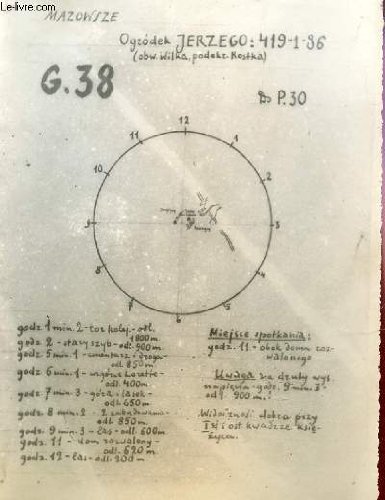 livre-rare-book
MAZOWSZE
Ogródek JERZEGO: 419-1-86
(obw. Wilka, podokr. Kostka)
G.38
Do P.30
12
1
2
3
4
5
6
7
8
9
10
godz 1 min. 2 - tor kolej. - otl.
1800 m
godz 2 - stary szyb - odl. 900 m
godz 5 min. 1 - cmentarz i droga -
odl. 850 m
godz 6 min. 1 -
odl. 400 m
godz 7 min. 3 - góra i lasek -
odl. 650 m
godz 8 min. 2 - 2 zabudowania -
odl. 850 m.
godz. 9 min. 3 - las - odl. 600 m
godz. 11 - dom rozwalony -
odl. 620 m
godz. 12 - las - odl. 300 m
Miejsce spotkania:
godz. 11 - obok domu roz-
walonego
Uwaga na druty wys.
napięcia - godz. 9 min. 3 -
odl. 900 m.
Widoczność dobra przy
I szej ost. kwadrze księ-
życa.